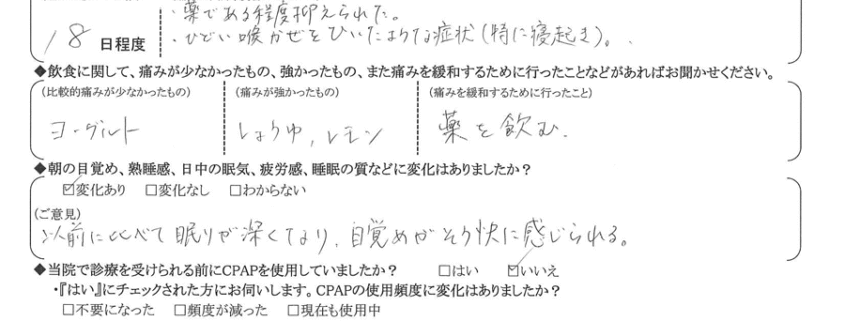 ・薬である程度抑えられた。
18 日程度
・ひどい喉かぜをひいたような症状(特に寝起き)。
◆飲食に関して、痛みが少なかったもの、強かったもの、また痛みを緩和するために行ったことなどがあればお聞かせください。
(比較的痛みが少なかったもの) (痛みが強かったもの) (痛みを緩和するために行ったこと)
ヨーグルト しょうゆ,レモン 薬を飲む.
◆朝の目覚め、熟睡感、日中の眠気、疲労感、睡眠の質などに変化はありましたか?
☑変化あり □変化なし □わからない
(ご意見)
以前に比べて眠りが深くなり、目覚めがそう快に感じられる。
◆当院で診療を受けられる前にCPAPを使用していましたか? □はい ☑いいえ
・『はい』にチェックされた方にお伺いします。CPAPの使用頻度に変化はありましたか?
□不要になった □頻度が減った □現在も使用中